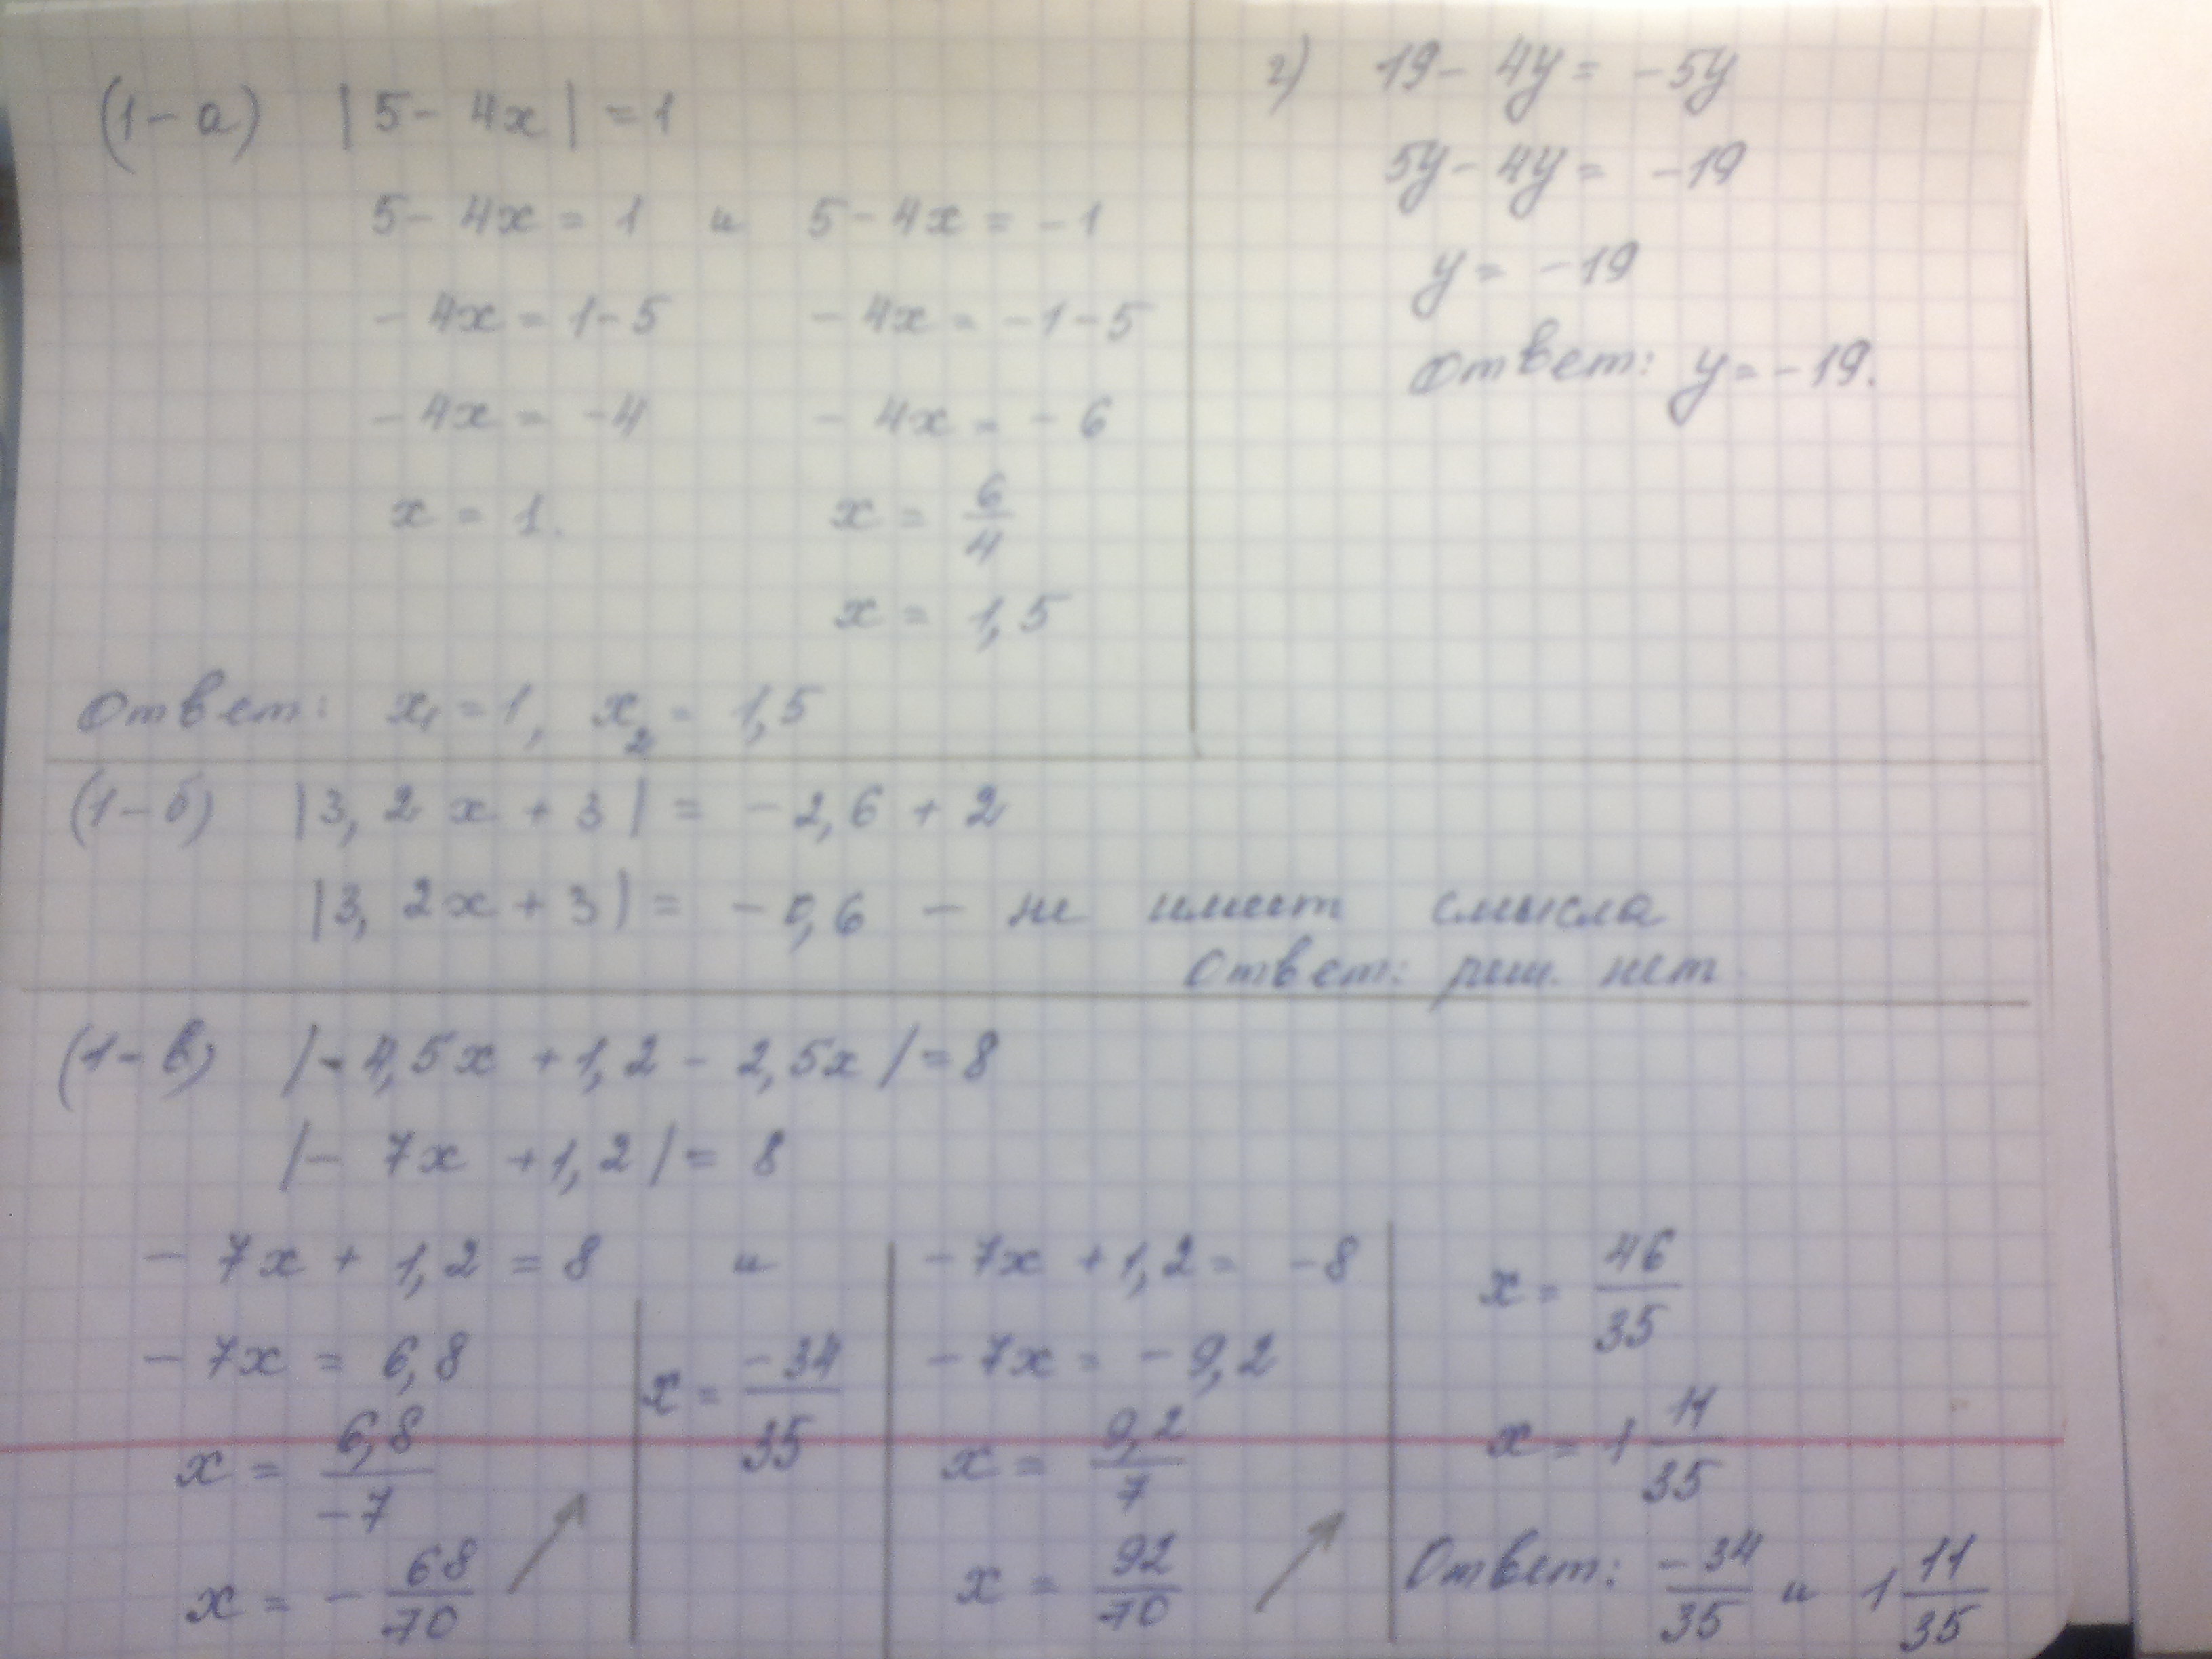 (1-а) |5 - 4x| = 1
5 - 4x = 1 и 5 - 4x = -1
- 4x = 1-5 - 4x = -1-5
- 4x = -4 - 4x = -6
x = 1. x = 6/4
x = 1,5
Ответ: x₁ = 1, x₂ = 1,5
г) 19 - 4y = -5y
5y - 4y = -19
y = -19
Ответ: y = -19.
(1-б) |3,2x + 3| = -2,6 + 2
|3,2x + 3| = -0,6 - не имеет смысла
Ответ: реш. нет
(1-в) |-4,5x + 1,2 - 2,5x| = 8
|-7x + 1,2| = 8
- 7x + 1,2 = 8 и
- 7x = 6,8
x = 6,8/-7
x = - 68/70
x = -34/35
- 7x + 1,2 = -8
- 7x = -9,2
x = 9,2/7
x = 92/70
x = 46/35
x = 1 11/35
Ответ: -34/35 и 1 11/35